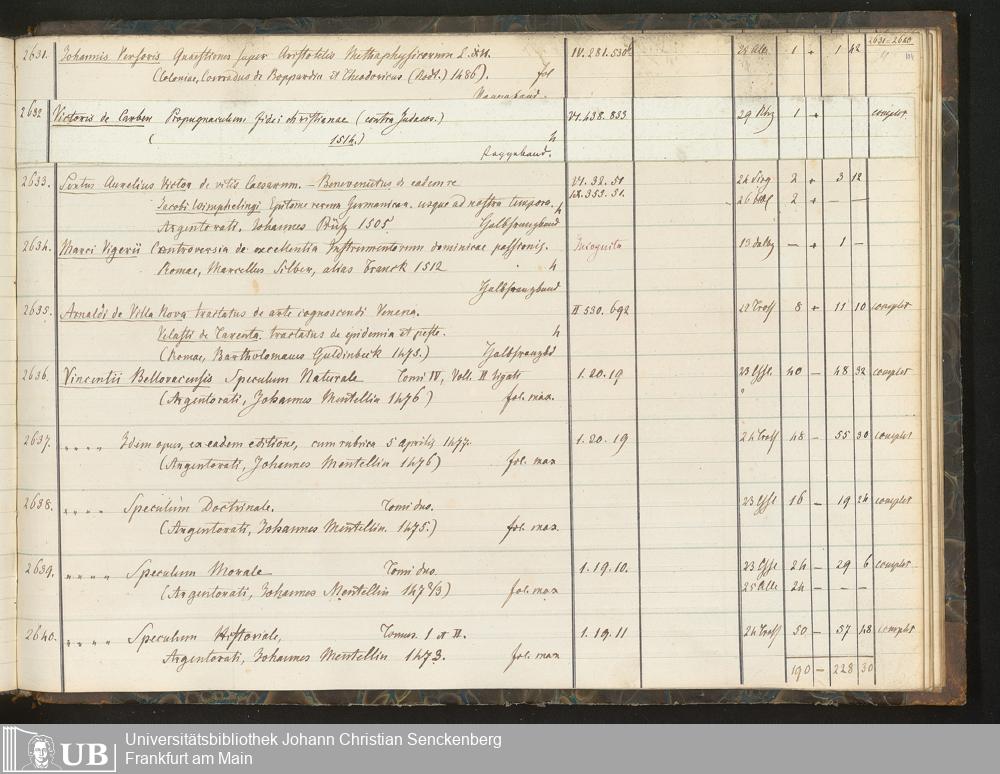 2631–2640
2631. Johannis Versoris Quaestiones super Aristotelis Methaphysicorum L. IV. 281. 530 1 + 1 42
(Coloniae, Conradus de Boppardia et Theodoricus 1486). fol
2632 Victoris de Carben Propugnaculum fidei christianae (contra Judaeos.) VI. 438. 853 29 1 + complet.
( 1514.) 4
Pappeband.
2633. Sextus Aurelius Victor de vitis Caesarum. – Benevenutus de eadem re VI. 32. 51 2 + 3 12
Jacobi Wimphelingi Epitome rerum Germanicarum usque ad nostra tempora. 4 IX. 353. 51. 26 2 + — —
Argentorati, Johannes Prüß 1505. Halbfranzband
2634. Marci Vigerii Controversia de excellentia Instrumentorum dominicae passionis. Incognita 13 — + 1 —
Romae, Marcellus Silber, alias Franck 1512 4
Halbfranzband
2635. Arnaldi de Villa Nova tractatus de arte cognoscendi Venena. II 530. 692 12 8 + 11 10 complet
Velasti de Tarenta tractatus de epidemia et peste. 4
(Romae, Bartholomaeus Guldinbeck 1475.) Halbfranzbd
2636. Vincentii Bellovacensis Speculum Naturale Tomi IV, Voll. II ligati 1. 20. 19 23 40 — 48 32 complet
(Argentorati, Johannes Mentellin 1476) fol. max.
2637. " " " " Idem opus, ex eadem editione, cum rubrica 5 Aprilis 1477. 1. 20. 19 24 48 — 55 30 complet
(Argentorati, Johannes Mentellin 1476) fol. max
2638. " " " " Speculum Doctrinale. Tomi duo. 23 16 — 19 24 complet
(Argentorati, Johannes Mentellin 1475.) fol. max
2639. " " " " Speculum Morale Tomi duo. 1. 19. 10. 23 24 — 29 6 complet
(Argentorati, Johannes Mentellin fol. max 25 24 — — —
2640. " " " " Speculum Historiale, Tomus. I et II. 1. 19. 11 24 50 — 57 48 complet
Argentorati, Johannes Mentellin 1473. fol. max
190 — 228 30
UB
Universitätsbibliothek Johann Christian Senckenberg
Frankfurt am Main